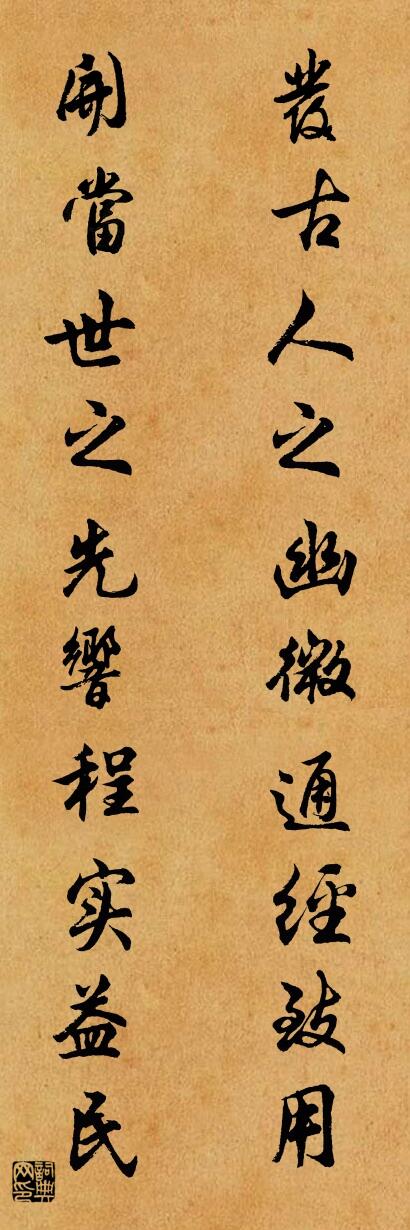 發古人之幽微通經致用
開當世之先響程实益民
詞典网印